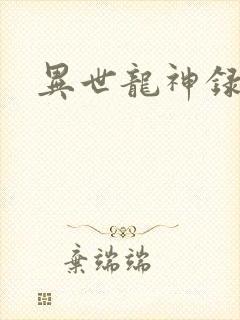 異世龍神録
棄端端